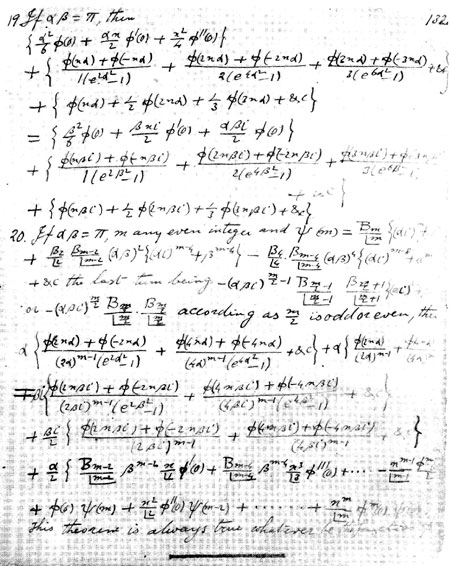 132
19. If αβ = π, then
{α²/6 φ(0) + αx/2 φ'(0) + x²/4 φ''(0)}
+ {φ(xα)+φ(-xα)/1(e^{2α²}-1) + φ(2xα)+φ(-2xα)/2(e^{4α²}-1) + φ(3xα)+φ(-3xα)/3(e^{6α²}-1) + &c}
+ {φ(xα) + 1/2 φ(2xα) + 1/3 φ(3xα) + &c}
= {β²/6 φ(0) + βxi/2 φ'(0) + αβi/2 φ(0)}
+ {φ(xβi)+φ(-xβi)/1(e^{2β²}-1) + φ(2xβi)+φ(-2xβi)/2(e^{4β²}-1) +
+ &c}
+ {φ(xβi) + 1/2 φ(2xβi) + 1/3 φ(3xβi) + &c}
20. If αβ = π, m any even integer and ψ(m) = B_m/|m {(αi)
+ B_2/|2 B_{m-2}/|m-2 (αβ)² {(αi)^{m-4} + β^{m-4}} - B_4/|4 . B_{m-4}/|m-4 (αβ)⁴ {(αi)^{m-8} +
+ &c the last term being -(αβi)^{m/2-1} B_{m/2-1}/|m/2-1 B_{m/2+1}/|m/2+1 {(αi)²
or -(αβi)^{m/2} B_{m/2}/|m/2 . B_{m/2}/|m/2 according as m/2 is odd or even, the
α {φ(2xα)+φ(-2xα)/(2α)^{m-1}(e^{2α²}-1) + φ(4xα)+φ(-4xα)/(4α)^{m-1}(e^{4α²}-1) + &c} + α {φ(2xα)/(2α)^{m-1} +
βi {φ(2xβi)+φ(-2xβi)/(2βi)^{m-1}(e^{2β²}-1) + φ(4xβi)+φ(-4xβi)/(4βi)^{m-1}(e^{4β²}-1) + &c}
+ βi/2 {φ(2xβi)+φ(-2xβi)/(2βi)^{m-1} + φ(4xβi)+φ(-4xβi)/(4βi)^{m-1} + &c}
+ α/2 {B_{m-2}/|m-2 β^{m-2} x/|1 φ'(0) + B_{m-4}/|m-4 β^{m-4} x³/|3 φ'''(0) + ····· - x^{m-1}/|m-1 φ^{m-1}
+ φ(0) ψ(m) + x²/|2 φ''(0) ψ(m-2) + ········ + x^m/|m φ^m(0)
This theorem is always true whatever be the function